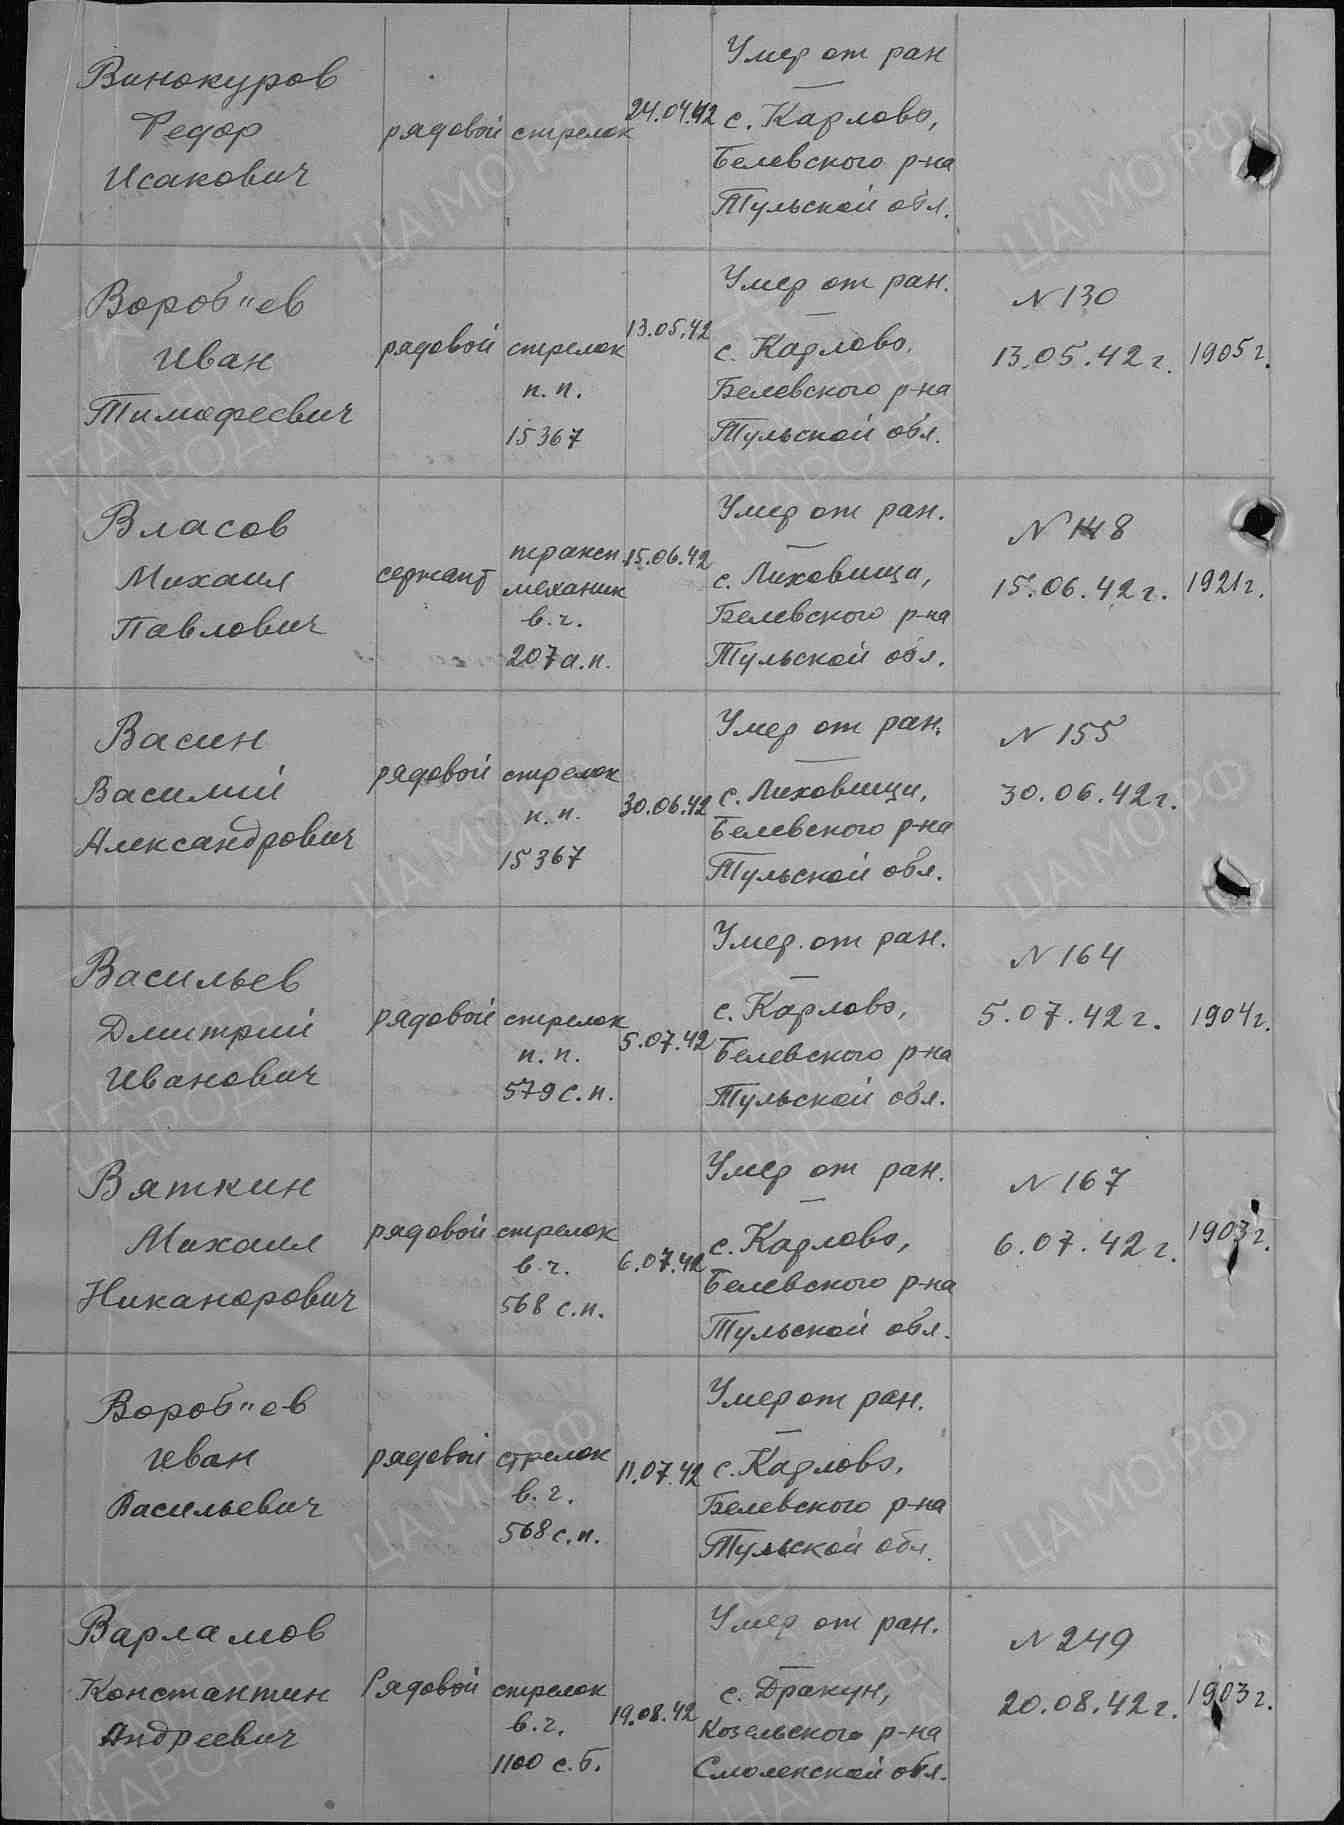 Винокуров
Федор
Исакович
рядовой
стрелок
24.04.42
Умер от ран
с. Карлово,
Белевского р-на
Тульской обл.
Вороб"ев
Иван
Тимофеевич
рядовой
стрелок
п.п.
15367
13.05.42
Умер от ран.
с. Карлово.
Белевского р-на
Тульской обл.
N 130
13.05.42 г.
1905 г.
Власов
Михаил
Павлович
сержант
механик
в.ч.
207 а.п.
15.06.42
Умер от ран.
с. Лиховища,
Белевского р-на
Тульской обл.
N 148
15.06.42 г.
1921 г.
Васин
Василий
Александрович
рядовой
стрелок
п.п.
15367
30.06.42
Умер от ран.
с. Лиховищи,
Белевского р-на
Тульской обл.
N 155
30.06.42 г.
Васильев
Дмитрий
Иванович
рядовой
стрелок
п.п.
579 с.п.
5.07.42
Умер от ран.
с. Карлово,
Белевского р-на
Тульской обл.
N 164
5.07.42 г.
1904 г.
Вяткин
Михаил
Никанорович
рядовой
стрелок
в.ч.
568 с.п.
6.07.42
Умер от ран.
с. Карлово,
Белевского р-на
Тульской обл.
N 167
6.07.42 г.
1903 г.
Вороб"ев
Иван
Васильевич
рядовой
стрелок
в.ч.
568 с.п.
11.07.42
Умер от ран.
с. Карлово,
Белевского р-на
Тульской обл.
Варламов
Константин
Андреевич
Рядовой
стрелок
в.ч.
1100 с.б.
19.08.42
Умер от ран.
с. Дракун,
Козельского р-на
Смоленской обл.
N 249
20.08.42 г.
1903 г.
ЦАМО РФ
ЦАМО РФ
ПАМЯТЬ
НАРОДА
ПАМЯТЬ
НАРОДА
ЦАМО РФ
ЦАМО РФ
ПАМЯТЬ
НАРОДА
ПАМЯТЬ
НАРОДА
ЦАМО РФ
ЦАМО РФ
ПАМЯТЬ
НАРОДА
ПАМЯТЬ
НАРОДА